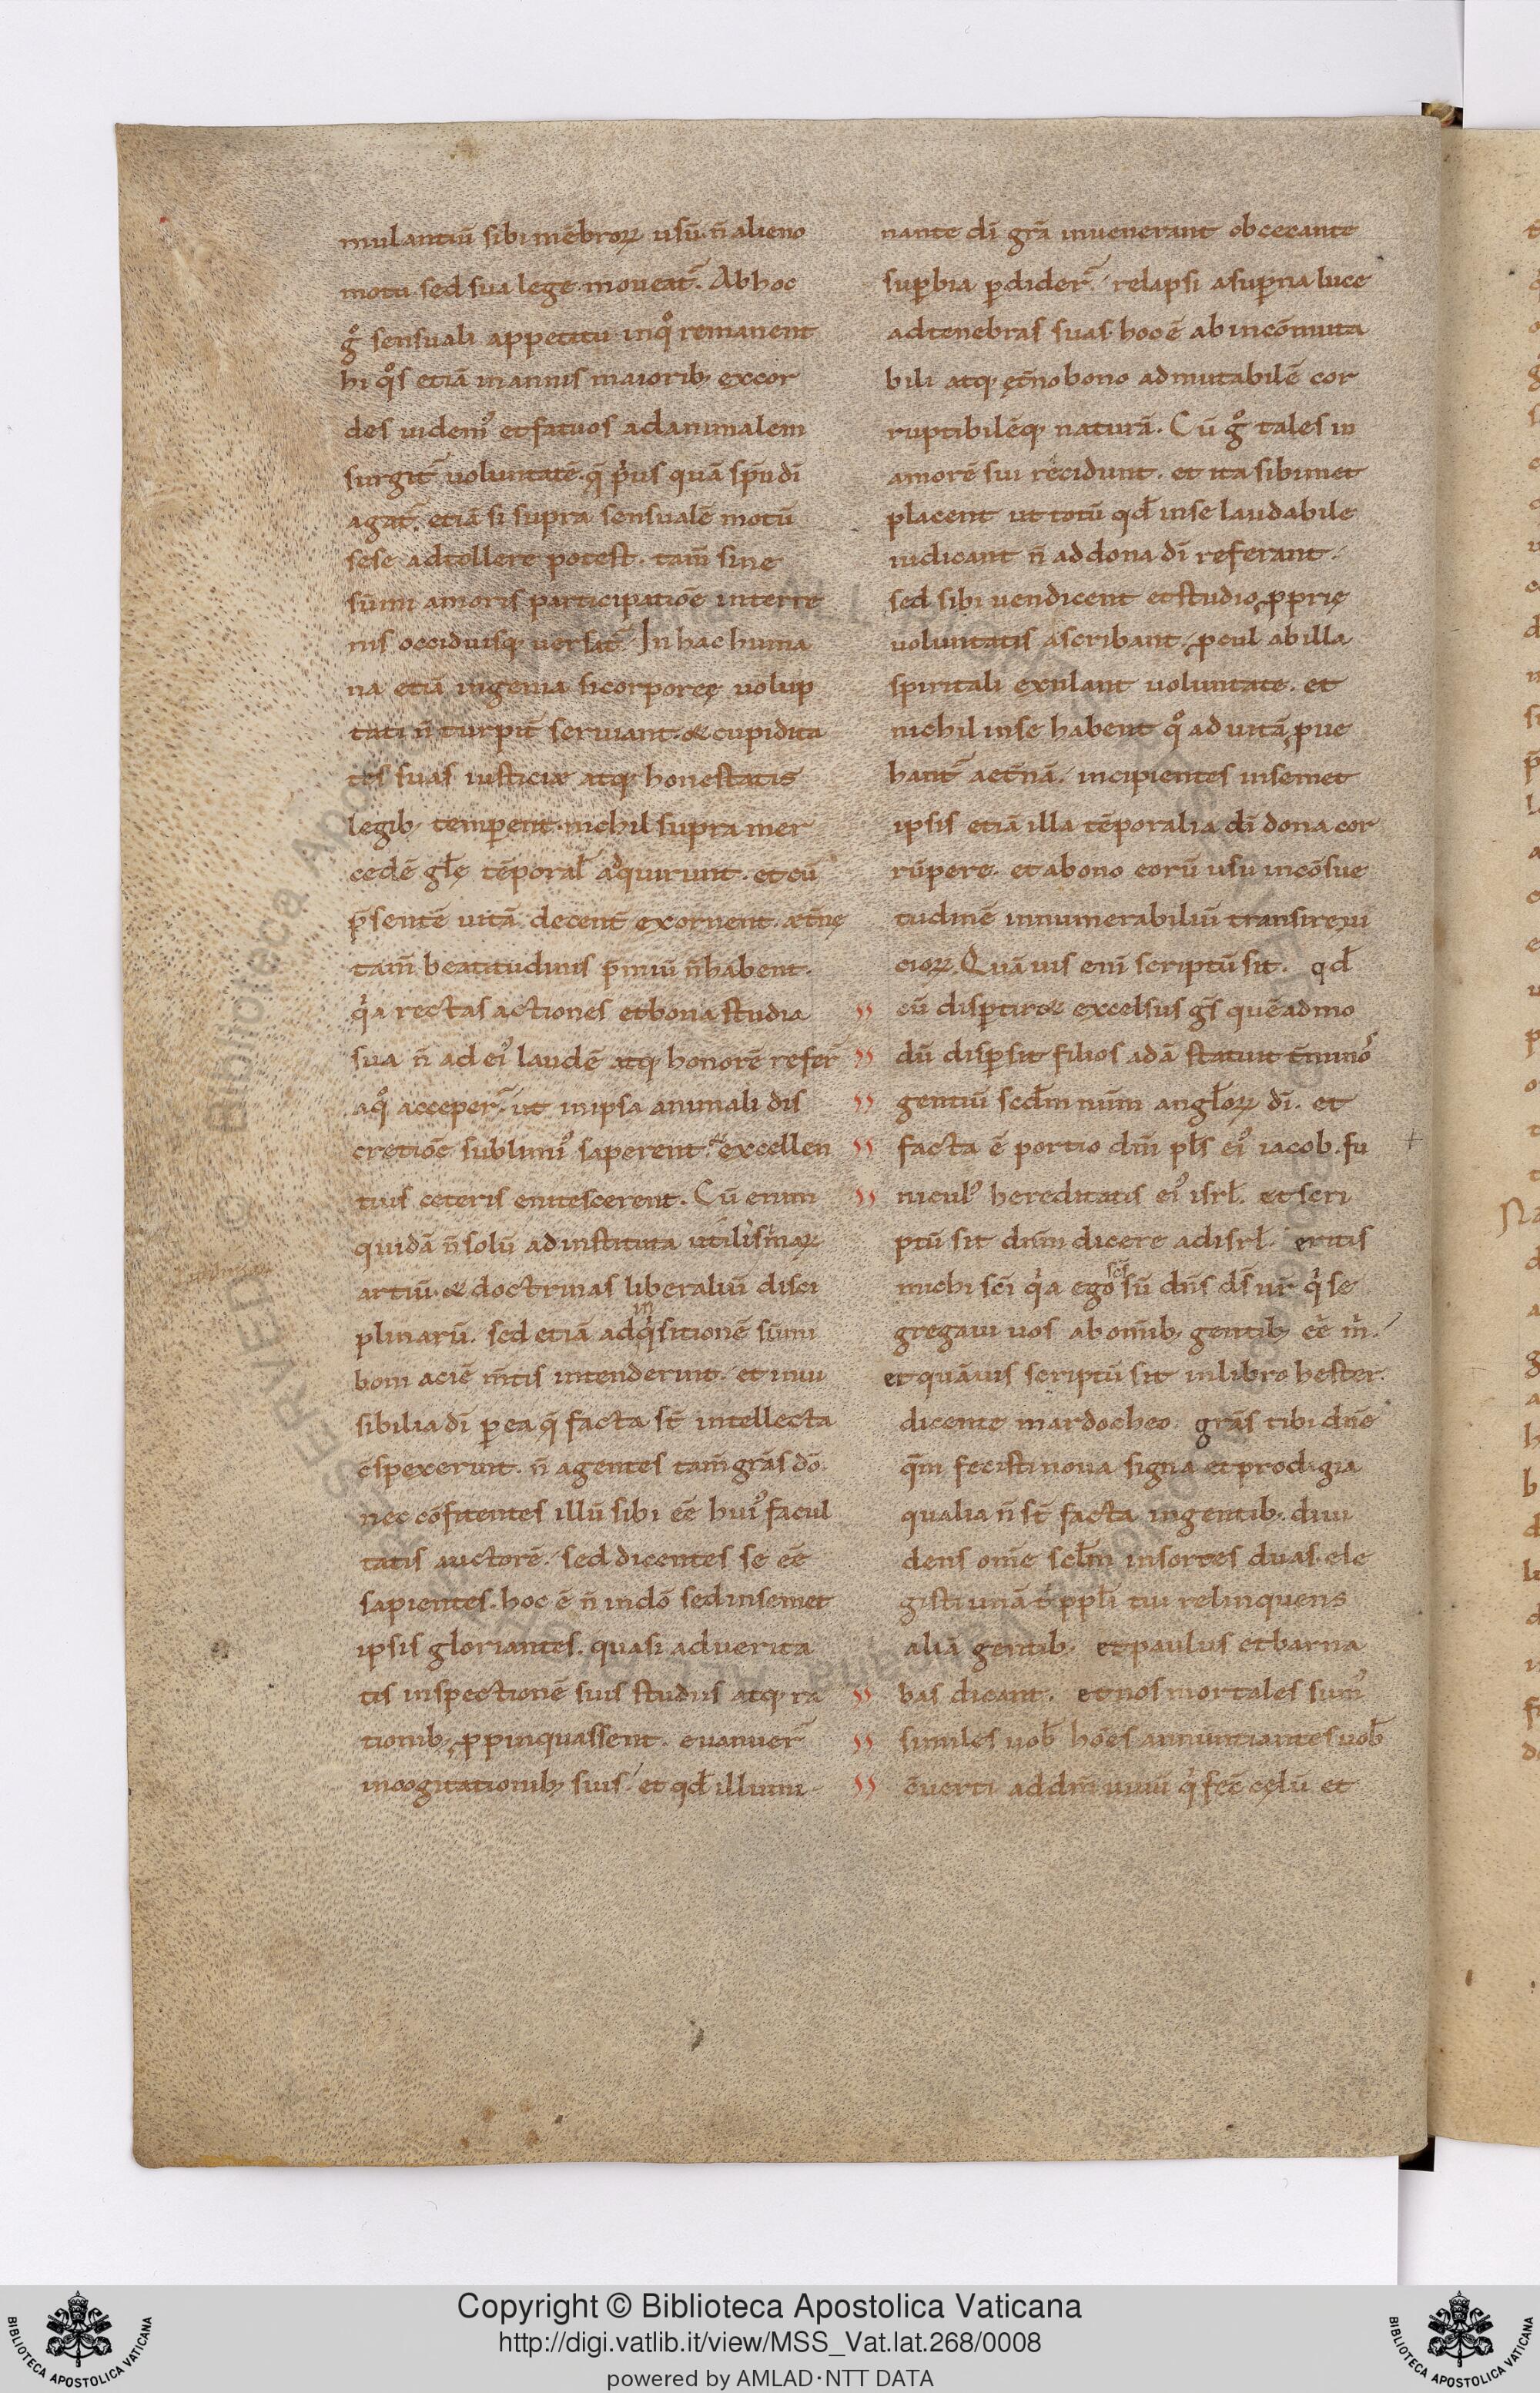 mulantiū sibi mēbroꝝ usū. n̄ alieno
motu sed sua lege moueat᷑. Ab hoc
gͦ sensuali appetitu inqͦ remanent
hi qͦs etiā in annis maiorib; excor
des uidemꝰ et fatuos ad animalem
surgit᷑ uoluntatē. q̄ pͥus quā sp̄u dī
agat᷑. etiā si supra sensualē motū
sese adtollere potest. tam̄ sine
sūmi amoris participatiōe interre
nis occiduisq; uersat᷑. In hac huma
na etiā ingenia si corporeę uolup
tati n̄ turpit̄ seruiant. & cupidita
tes suas iusticiæ atq; honestatis
legib; temꝑent. nichil supra mer
cedē gl̄ę tēporal̄ adquirunt. et cū
p̄sentē uitā decent̄ exornent. æt̄nę
tam̄ beatitudinis p̄miū n̄ habent.
qͥa rectas actiones et bona studia
sua n̄ ad eiꝰ laudē atq; honorē refer̄
aqͦ acceper̄. ut in ipsa animali dis
cretiōe sublimiꝰ saperent. & excellen
tius ceteris enitescerent. Cū enim
quidā n̄ solū ad instituta utilisͥmaꝝ
artiū. & doctrinas liberaliū disci
plinarū. sed etiā ad inqͥsitionē sūmi
boni aciē m̄tis intenderint. et inui
sibilia dī ꝑ ea q̄ facta st̄ intellecta
c̄spexerint. n̄ agentes tam̄ grās dō.
nec cōfitentes illū sibi eē huiꝰ facul
tatis auctorē. sed dicentes se eē
sapientes. hoc ē n̄ in dō sed in semet
ipsis gloriantes. quasi ad uerita
tis inspectionē suis studiis atq; ra
tionib; ꝓpinquassent. euanuer̄
in cogitationib; suis. et qd̄ illumi
nante dī grā inuenerant obcecante
suꝑbia ꝑdider̄. relapsi a suꝑna luce
ad tenebras suas. hoc ē ab incōmuta
bili atq; ęt̄no bono ad mutabilē cor
ruptibilēq; naturā. Cū gͦ tales in
amorē sui recidunt. et ita sibimet
placent ut totū qd̄ in se laudabile
iudicant n̄ ad dona dī referant.
sed sibi uendicent et studio ꝓprię
uoluntatis ascribant. ꝓcul ab illa
spiritali exulant uoluntate. et
nichil in se habent qͦ ad uitā ꝓue
hant᷑ aet̄nā. incipientes in semet
ipsis etiā illa tēporalia dī dona cor
rūpere. et a bono eorū usu in cōsue
tudinē innumerabiliū transire ui
cioꝝ. Quāuis enī scriptū sit. qd̄
cū disꝑtiret excelsus gēs quēadmo
dū disꝑsit filios adā statuit t̄minoꝰ
gentiū scd̄m num̄ angl̄oꝝ dī. et
facta ē portio dn̄i pl̄s eiꝰ iacob. fu
niculꝰ hereditatis eiꝰ isrl̄. et scri
ptū sit dn̄m dicere ad isrl̄. eritis
michi sc̄i qͥa ego scs̄ sū dn̄s ds̄ ur̄ qͥ se
gregaui uos ab om̄ib; gentib; eē m̄.
et quāuis scriptū sit in libro hester.
dicente mardocheo. grās tibi dn̄e
qm̄ fecisti noua signa et prodigia
qualia n̄ st̄ facta in gentib;. diui
dens om̄e scl̄m in sortes duas. ele
gisti unā t̄ ppl̄i tui relinquens
aliā gentib;. et paulus et barna
bas dicant. et nos mortales sumꝰ
similes uob̄ hoēs annuntiantes uob̄
c̄uerti ad dm̄ uiuū qͥ fec̄ cęlū et